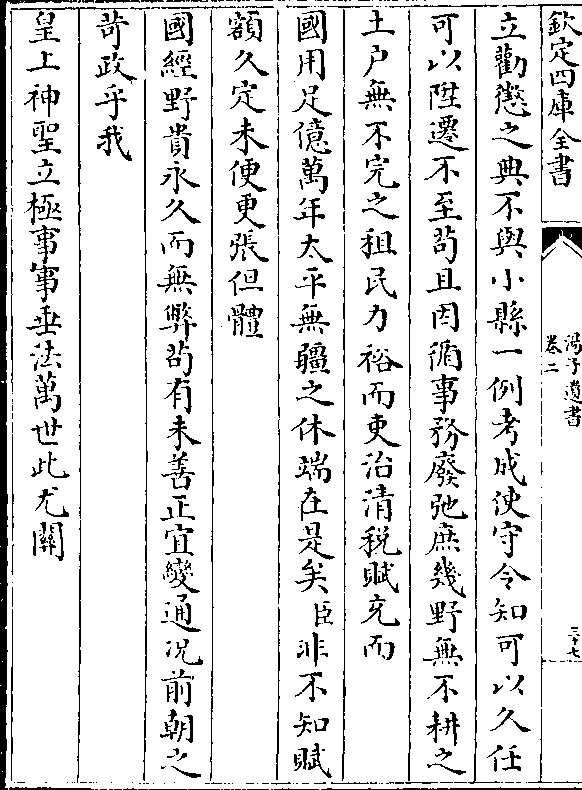 欽定四庫全書
湯子遺書
卷二
三十七
立勸懲之典不與小縣一例考成使守令知可以久任
可以陞遷不至茍且因循事務廢弛庶幾野無不耕之
土户無不完之租民力裕而吏治清税賦充而
國用足億萬年太平無疆之休端在是矣臣非不知賦
額久定未便更張但體
國經野貴永久而無弊茍有未善正宜變通况前朝之
苛政乎我
皇上神聖立極事事垂法萬世此尤關